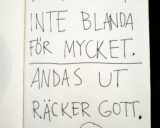 INTE BLANDA
FÖR MYCKET.
ANDAS UT
RÄCKER GOTT.